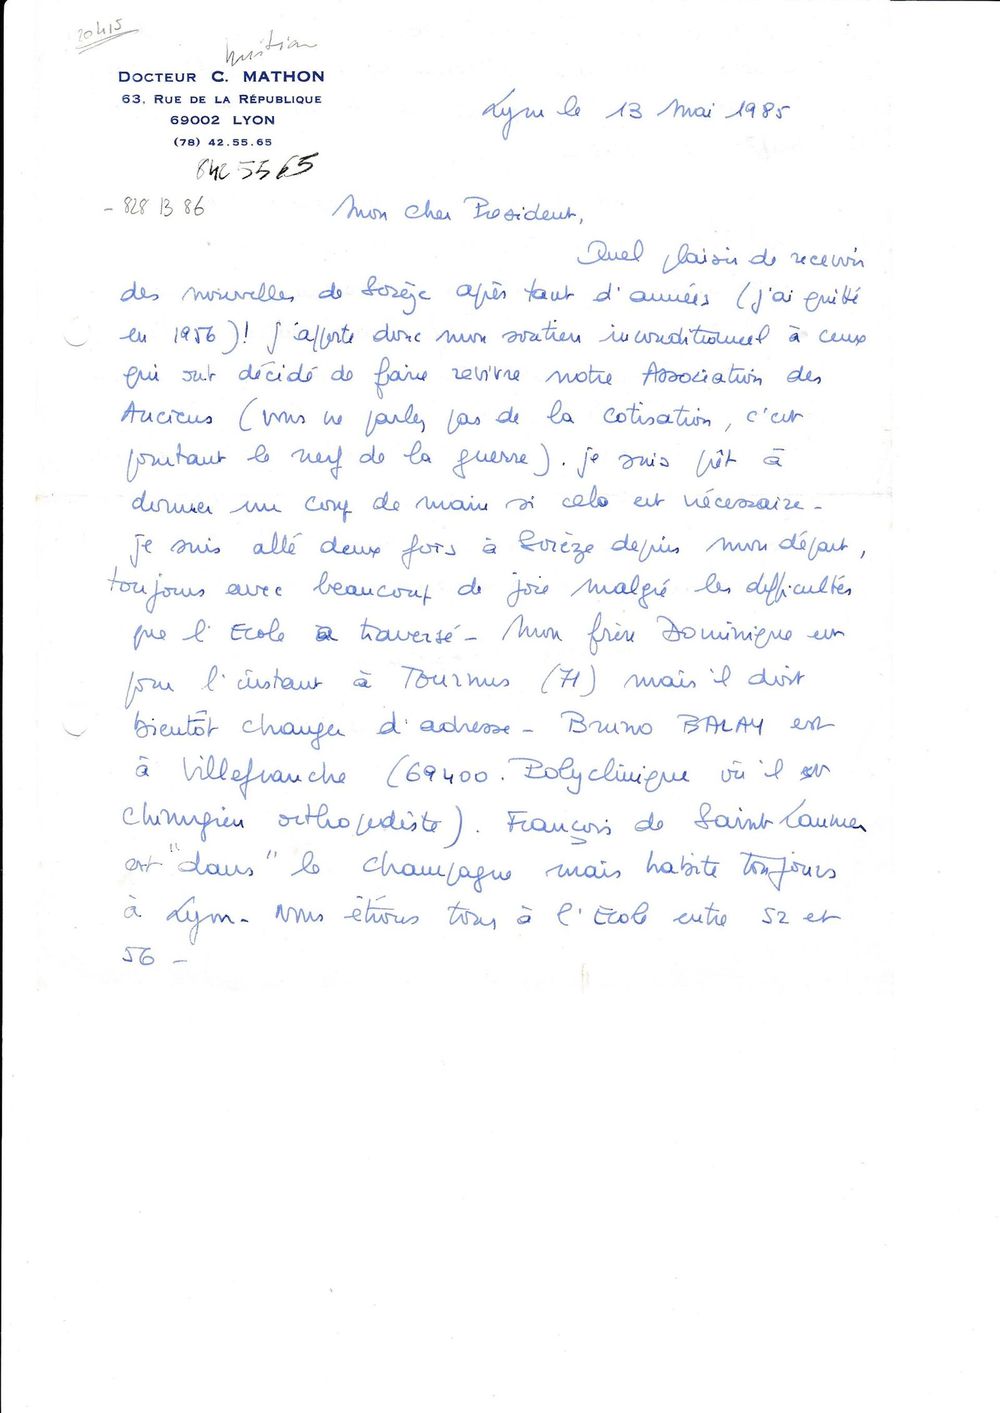 20h15
DOCTEUR C. MATHON
63, RUE DE LA RÉPUBLIQUE
69002 LYON
(78) 42.55.65
842 55 65
- 828 13 86
Lyon le 13 Mai 1985
Mon cher President,
Quel plaisir de recevoir
des nouvelles de Sorèze après tant d'années (j'ai quitté
en 1956)! J'apporte donc mon soutien inconditionnel à ceux
qui ont décidé de faire revivre notre Association des
Anciens (vous ne parlez pas de la cotisation, c'est
pourtant le nerf de la guerre). je suis prêt à
donner un coup de main si cela est nécessaire -
je suis allé deux fois à Sorèze depuis mon départ,
toujours avec beaucoup de joie malgré les difficultés
que l'Ecole a traversé - Mon frère Dominique est
pour l'instant à Tournus (71) mais il doit
bientôt changer d'adresse - Bruno BALAY est
à Villefranche (69400. Polyclinique où il est
chirurgien orthopédiste). François de Saint Laumer
est "dans" le champagne mais habite toujours
à Lyon - Nous étions tous à l'Ecole entre 52 et
56 -